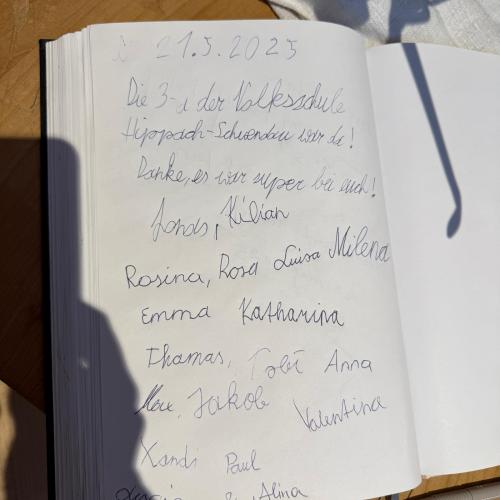 21.5.2025
Die 3-a der Volksschule
Hippach-Schwendau war da!
Danke, es war super bei euch!
Kilian
Rosina, Rosa Luisa Milena
Emma Katharina
Thomas, Tobi Anna
Max, Jakob Valentina
Xandi Paul
Alina